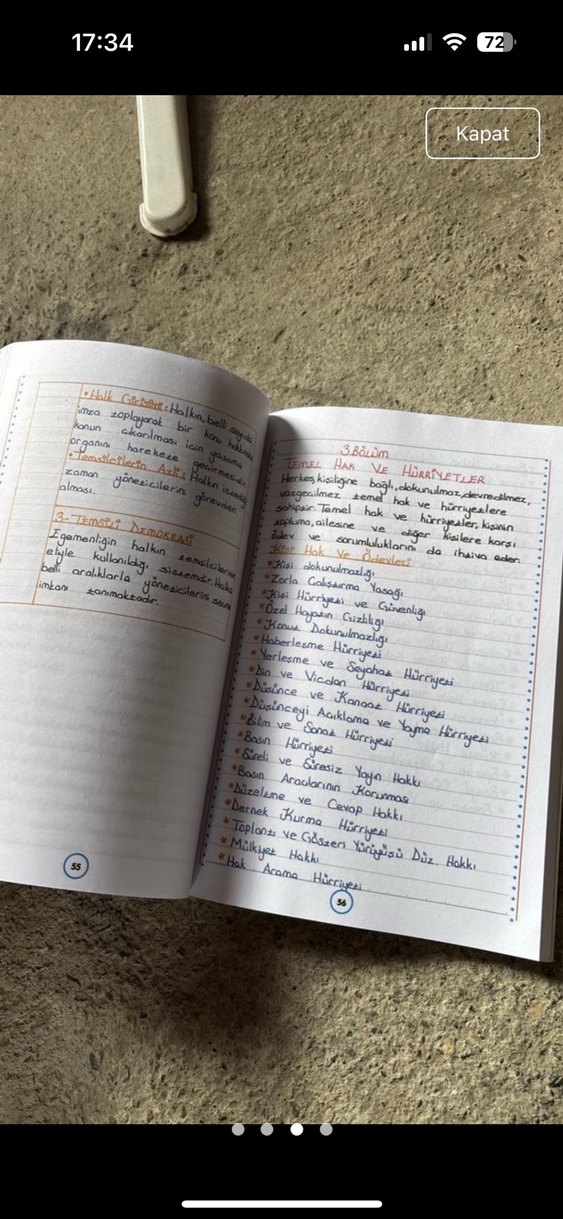 17:34
72
Kapat
• Halk Girişimi: Halkın, belli sayıda
imza toplayarak bir konu hakkında
kanun çıkarılması için yasama
organını harekete geçirmesidir.
• Temsilcilerin Azli: Halkın istediği
zaman yöneticilerini görevden
alması.
3- TEMSİLİ DEMOKRASİ
Egemenliğin halkın temsilcilerinin
eliyle kullanıldığı sistemdir. Halka
belli aralıklarla yöneticilerini seçme
imkanı tanımaktadır.
55
3.BÖLÜM
TEMEL HAK VE HÜRRİYETLER
Herkes, kişiliğine bağlı, dokunulmaz, devredilmez,
vazgeçilmez temel hak ve hürriyetlere
sahiptir. Temel hak ve hürriyetler, kişinin
topluma, ailesine ve diğer kişilere karşı
ödev ve sorumluluklarını da ihtiva eder.
Kişi Hak Ve Ödevleri
* Kişi dokunulmazlığı
* Zorla Çalıştırma Yasağı
* Kişi Hürriyeti ve Güvenliği
* Özel Hayatın Gizliliği
* Konut Dokunulmazlığı
* Haberleşme Hürriyeti
* Yerleşme ve Seyahat Hürriyeti
* Din ve Vicdan Hürriyeti
* Düşünce ve Kanaat Hürriyeti
* Düşünceyi Açıklama ve Yayma Hürriyeti
* Bilim ve Sanat Hürriyeti
* Basın Hürriyeti
* Süreli ve Süresiz Yayın Hakkı
* Basın Araçlarının Korunması
* Düzeltme ve Cevap Hakkı
* Dernek Kurma Hürriyeti
* Toplantı ve Gösteri Yürüyüşü Düz. Hakkı
* Mülkiyet Hakkı
* Hak Arama Hürriyeti
56